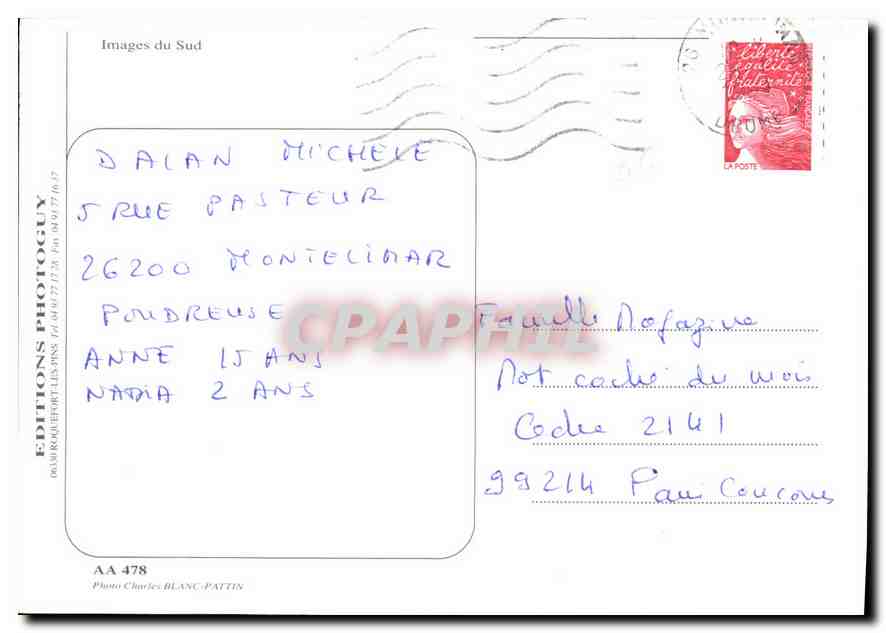 Images du Sud
liberté
égalité
fraternité
LA POSTE
DROME
DALAN MICHELE
5 RUE PASTEUR
26200 MONTELIMAR
POUDREUSE
ANNE 15 ANS
NADIA 2 ANS
CPAPHIL
Famille Magazine
Mot caché du mois
Cedex 2141
99214 Paris Concours
EDITIONS PHOTOGUY
06330 ROQUEFORT-LES-PINS Tel. 04 93 77 17 28 - Fax 04 93 77 16 17
AA 478
Photo Charles BLANC-PATTIN